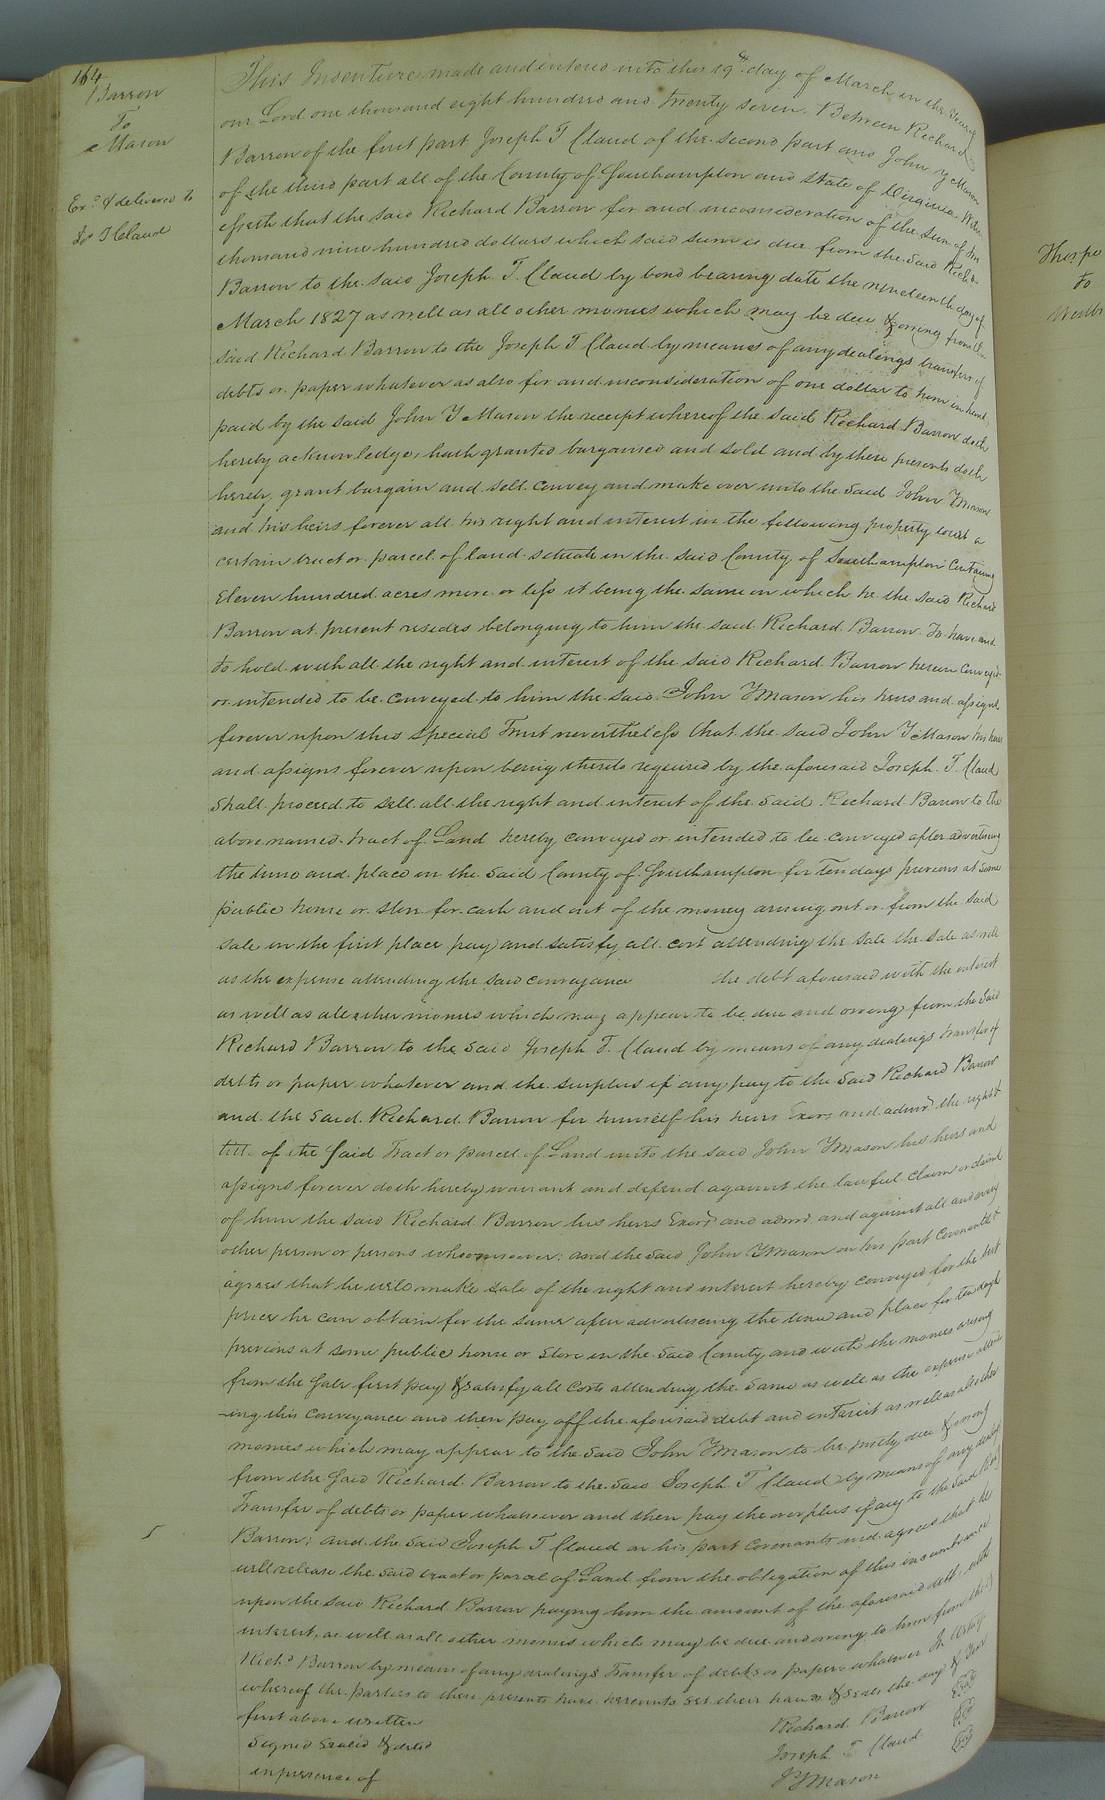 164
Barron
To
Mason
Exd & delivered to
Jos T Claud
This Indenture made and entered into this 19th day of March in the year of
our Lord one thousand eight hundred and twenty seven. Between Richard
Barron of the first part Joseph T Claud of the second part and John Y Mason
of the third part all of the County of Southampton and State of Virginia Witn
esseth that the said Richard Barron for and inconsideration of the sum of
thousand nine hundred dollars which said sum is due from the said Richd
Barron to the said Joseph T. Claud by bond bearing date the nineteenth day of
March 1827 as well as all other monies which may be due & owing from the
said Richard Barron to the Joseph T Claud by means of any dealings transfers of
debts or paper whatever as also for and inconsideration of one dollar to him in hand
paid by the said John Y Mason the receipt whereof the said Richard Barron doth
hereby acknowledge, hath granted bargained and sold and by these presents doth
hereby grant bargain and sell convey and make over unto the said John Y Mason
and his heirs forever all his right and interest in the following property towit a
certain tract or parcel of land situate in the said County of Southampton Containing
Eleven hundred acres more or less it being the same on which he the said Richard
Barron at present resides belonging to him the said Richard Barron To have and
to hold with all the right and interest of the said Richard Barron herein conveyd
or intended to be conveyed to him the said John Y Mason his heirs and assigns
forever upon this Special Trust nevertheless that the said John Y Mason his heirs
and assigns forever upon being thereto required by the aforesaid Joseph T. Claud
shall proceed to sell all the right and interest of the said Richard Barron to the
above named tract of Land hereby conveyed or intended to be conveyed after advertising
the time and place in the said County of Southampton for Ten days previous at some
public house or store for cash and out of the money arising out or from the said
sale in the first place pay and satisfy all cost attending the sale the sale as well
as the expense attending the said conveyance the debt aforesaid with the interest
as well as all other monies which may appear to be due and owing from the said
Richard Barron to the said Joseph T. Claud by means of any dealings transfer of
debts or paper whatever and the surplus if any pay to the said Richard Barron
and the said Richard Barron for himself his heirs Exors and admrs the right &
title of the said Tract or parcel of Land unto the said John Y Mason his heirs and
assigns forever doth hereby warrant and defend against the lawful claim or claims
of him the said Richard Barron his heirs Exors and admrs and against all and every
other person or persons whomsoever: and the said John Y Mason on his part Covenants &
agrees that he will make sale of the right and interest hereby conveyed for the best
price he can obtain for the same after advertising the time and place for ten days
previous at some public house or Store in the said County and with the monies arising
from the sale first pay & satisfy all costs attending the same as well as the expense attend
-ing this conveyance and then pay off the aforesaid debt and interest as well as all other
monies which may appear to the said John Y Mason to be justly due & owing
from the said Richard Barron to the said Joseph T Claud by means of any
Transfer of debts or paper whatsoever and then pay the overplus if any to the said Richd
Barron: and the said Joseph T Claud on his part Covenants and agrees that he
will release the said tract or parcel of Land from the obligation of this incumbrance
upon the said Richard Barron paying him the amount of the aforesaid debt, with
interest, as well as all other monies which may be due and owing to him from the sd
Richd Barron by means of any dealings Transfer of debts or paper whatever In Witness
whereof the parties to these presents have hereunto set their hands & seals the day & Year
first above written
Signed Sealed & deld
in presence of
Richard Barron
Joseph T Claud
J Y Mason
Thorpe
to